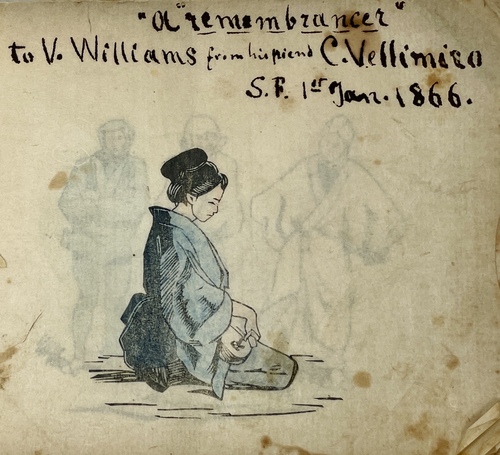 "a "remembrancer"
to V. Williams from his friend C. Vellimiro
S.F. 1st Jan. 1866.